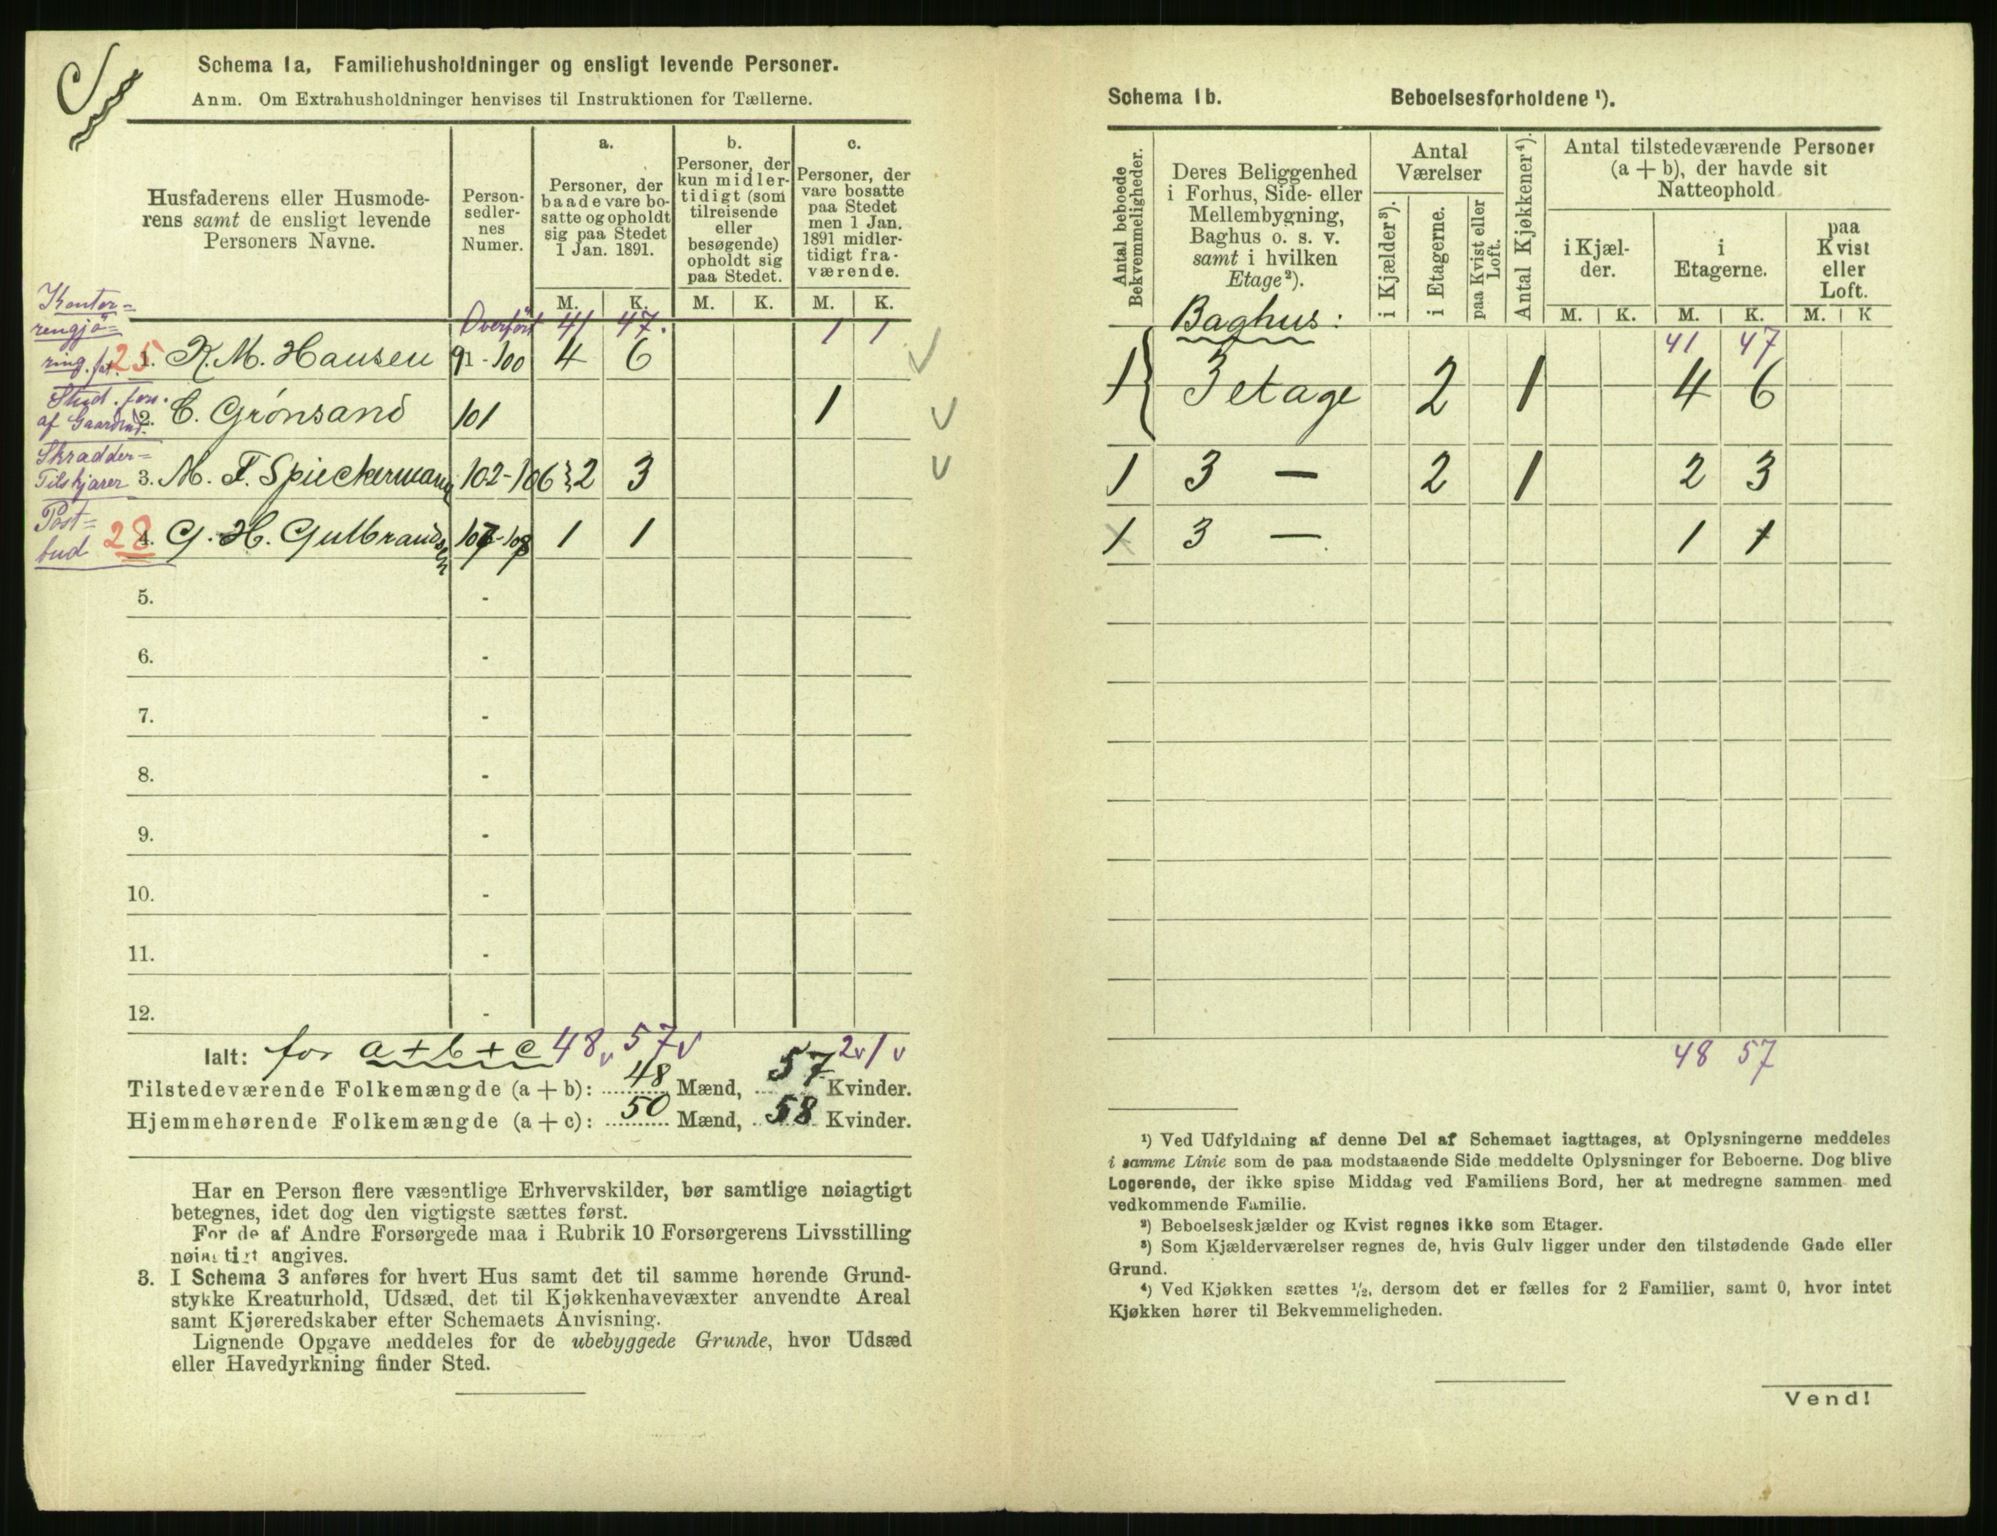 Schema 1a. Familiehusholdninger og ensligt levende Personer.
Anm. Om Extrahusholdninger henvises til Instruktionen for Tællerne.
Husfaderens eller Husmode-
rens samt de ensligt levende
Personers Navne.
Person-
sedler-
nes
Numer.
a.
Personer, der
baade vare bo-
satte og opholdt
sig paa Stedet
1 Jan. 1891.
b.
Personer, der
kun midler-
tidigt (som
tilreisende
eller
besøgende)
opholdt sig
paa Stedet.
c.
Personer, der
vare bosatte
paa Stedet
men 1 Jan.
1891 midler-
tidigt fra-
værende.
M. K. M. K. M. K.
Kontor=
rengjø=
ring. fat.
Overført 41 47. 1 1
25 1. K. M. Hansen 91-100 4 6
Stud. fon.
af Gaardind.
2. C. Grønsand 101 1
Skrædder=
Tilskjærer 3. M. F. Spieckermann 102-106 2 3
Post=
bud 28 4. G. H. Gulbrandsen 107-108 1 1
5. -
6. -
7. -
8. -
9. -
10. -
11. -
12. -
Ialt: for a+b+c 48 v 57 v 2 v 1 v
Tilstedeværende Folkemængde (a + b): 48 Mænd, 57 Kvinder.
Hjemmehørende Folkemængde (a + c): 50 Mænd, 58 Kvinder.
Har en Person flere væsentlige Erhvervskilder, bør samtlige nøiagtigt
betegnes, idet dog den vigtigste sættes først.
For de af Andre Forsørgede maa i Rubrik 10 Forsørgerens Livsstilling
nøiagtigt angives.
3. I Schema 3 anføres for hvert Hus samt det til samme hørende Grund-
stykke Kreaturhold, Udsæd, det til Kjøkkenhavevæxter anvendte Areal
samt Kjøreredskaber efter Schemaets Anvisning.
Lignende Opgave meddeles for de ubebyggede Grunde, hvor Udsæd
eller Havedyrkning finder Sted.
Schema 1b. Beboelsesforholdene ¹).
Antal beboede
Bekvemmeligheder.
Deres Beliggenhed
i Forhus, Side- eller
Mellembygning,
Baghus o. s. v.
samt i hvilken
Etage²).
Antal
Værelser
i Kjælder³).
i Etagerne.
paa Kvist eller
Loft.
Antal Kjøkkener⁴).
Antal tilstedeværende Personer
(a + b), der havde sit
Natteophold
i Kjæl-
der.
i
Etagerne.
paa
Kvist
eller
Loft.
M. K. M. K. M. K
Baghus:
41 47
1 3 etage 2 1 4 6
1 3 — 2 1 2 3
1 3 — 1 1
48 57
¹) Ved Udfyldning af denne Del af Schemaet iagttages, at Oplysningerne meddeles
i samme Linie som de paa modstaaende Side meddelte Oplysninger for Beboerne. Dog blive
Logerende, der ikke spise Middag ved Familiens Bord, her at medregne sammen med
vedkommende Familie.
²) Beboelseskjælder og Kvist regnes ikke som Etager.
³) Som Kjælderværelser regnes de, hvis Gulv ligger under den tilstødende Gade eller
Grund.
⁴) Ved Kjøkken sættes ½, dersom det er fælles for 2 Familier, samt 0, hvor intet
Kjøkken hører til Bekvemmeligheden.
Vend!